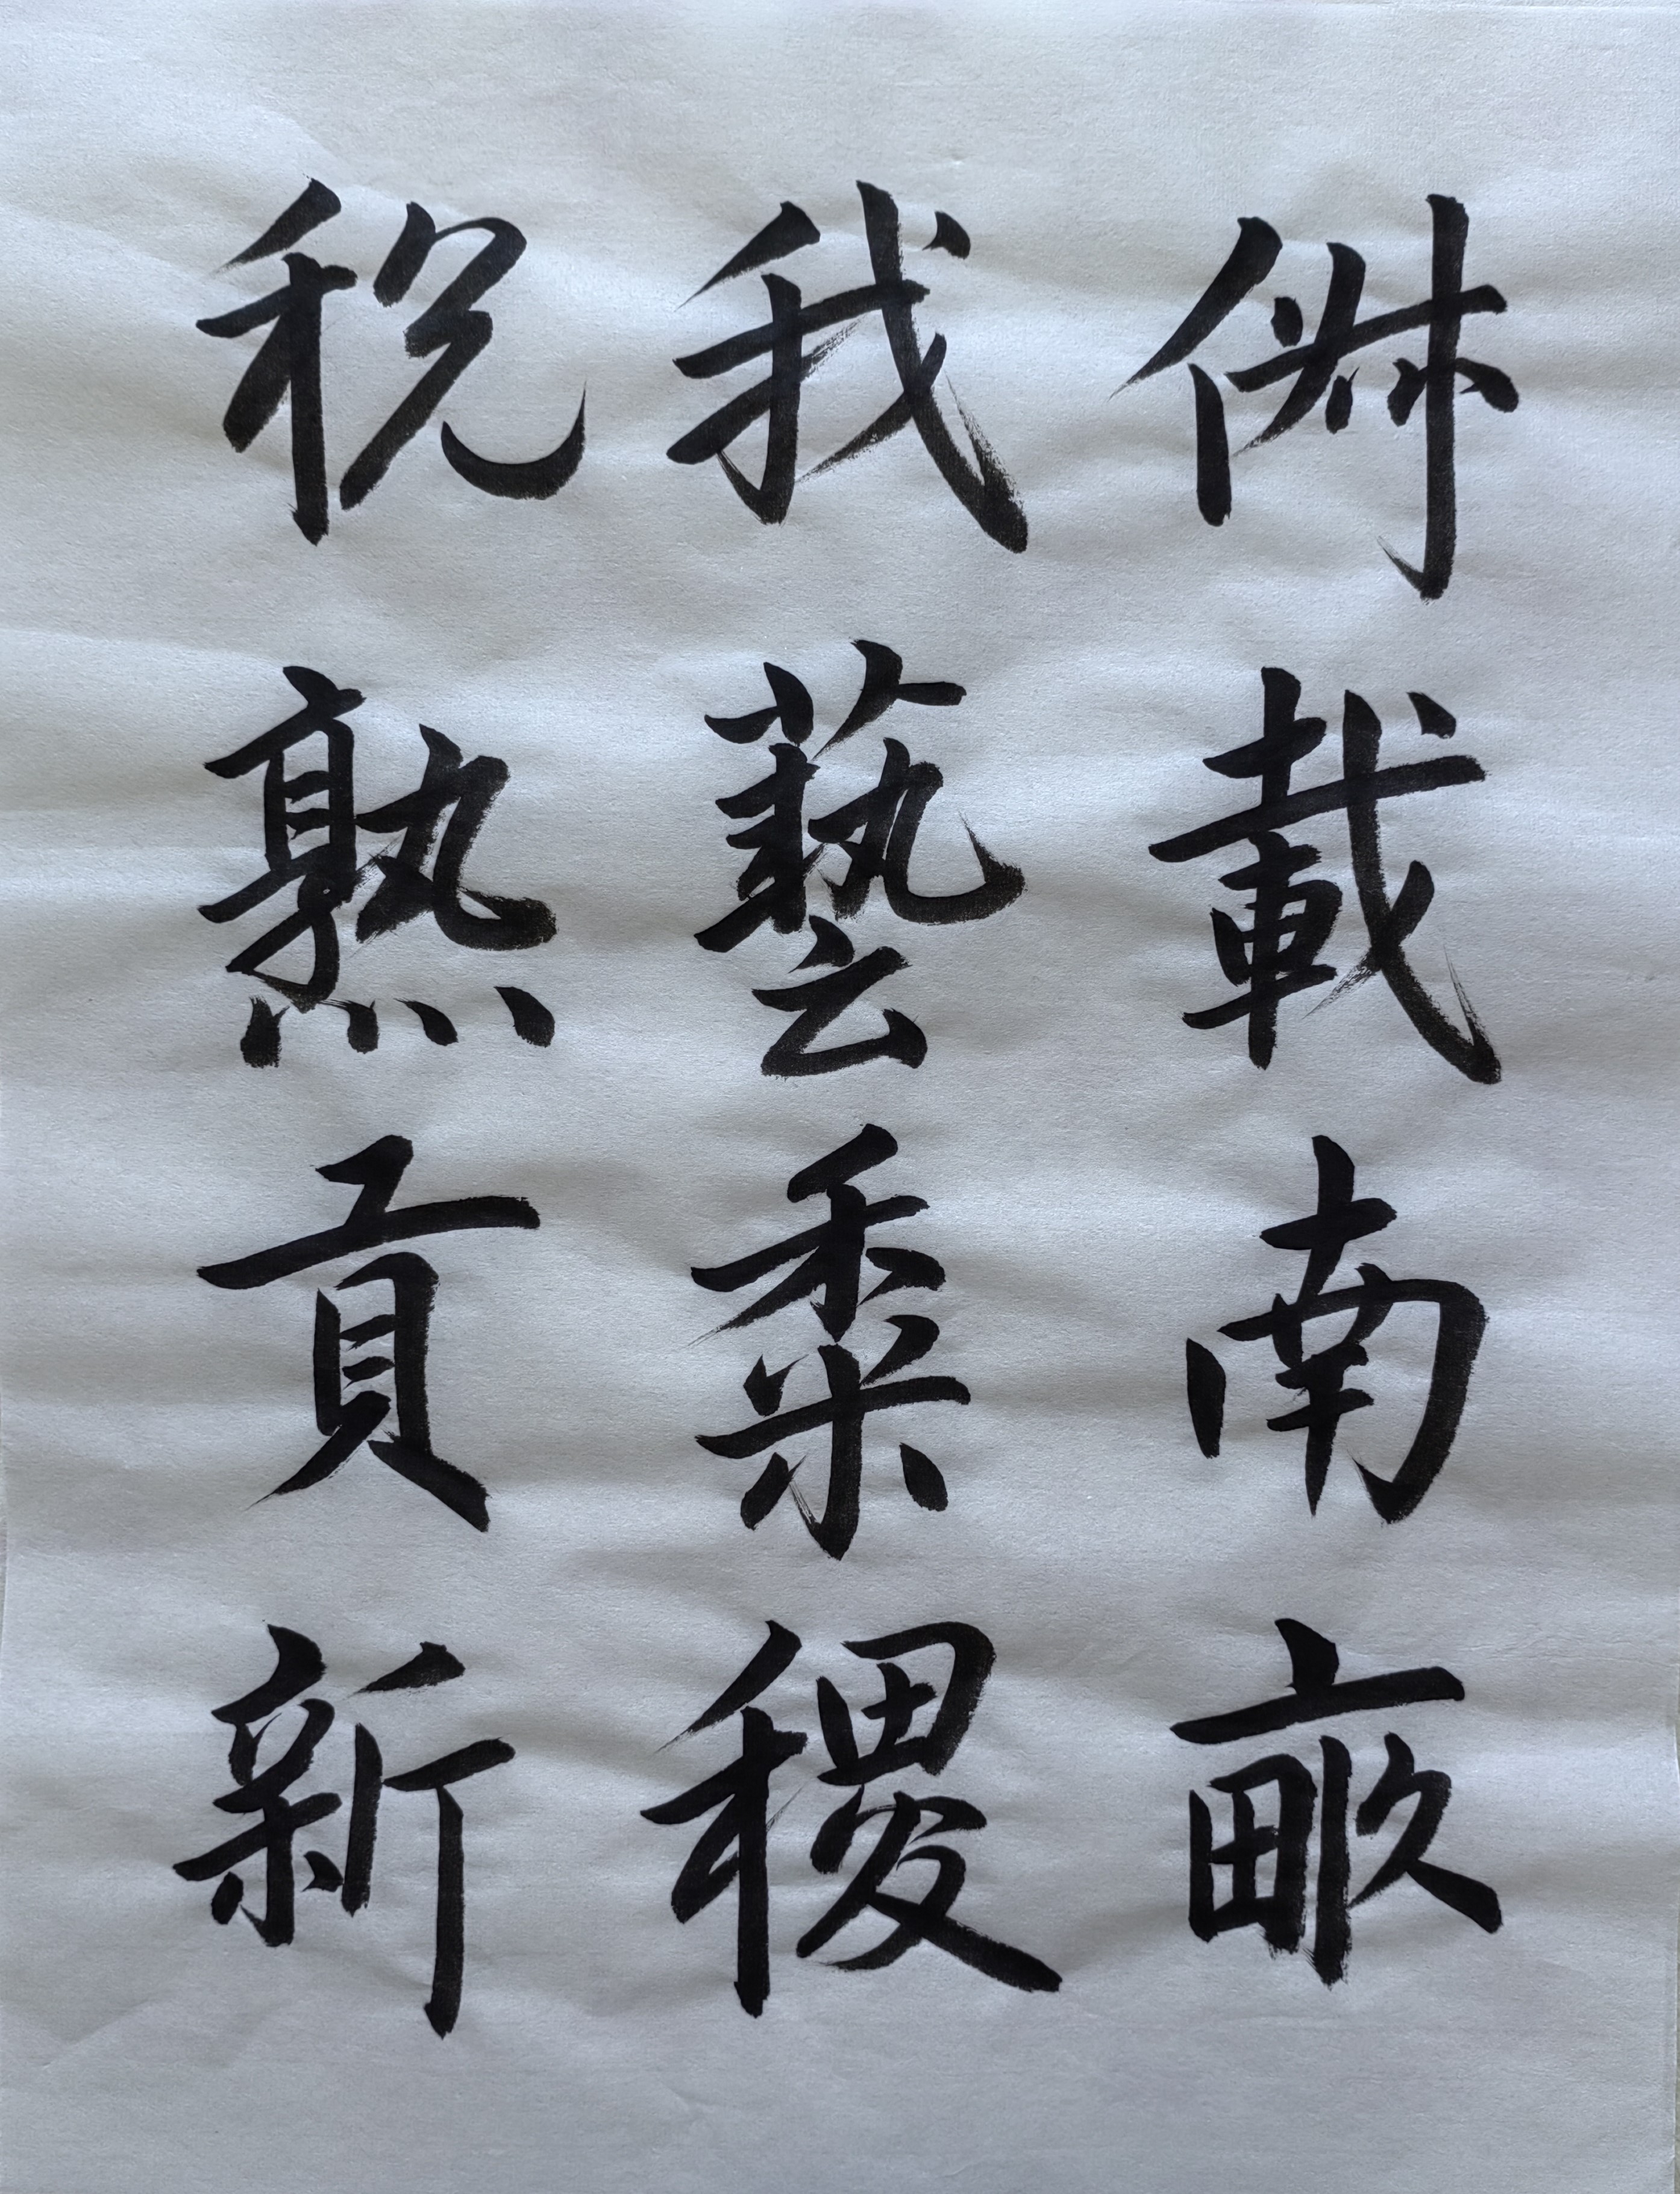 俶載南畝
我藝黍稷
稅熟貢新